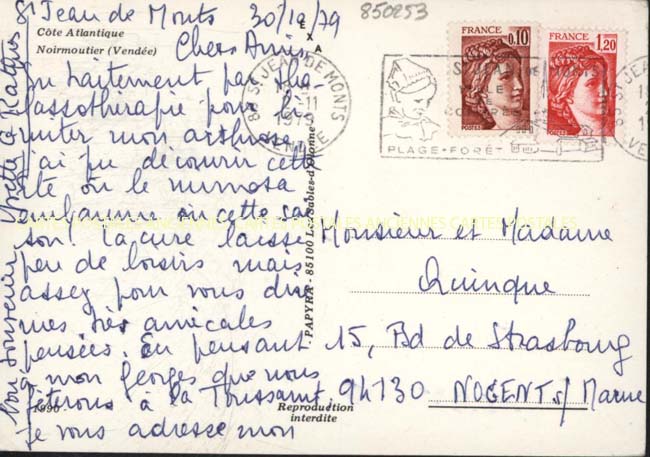 St Jean de Monts 30/10/79
Côte Atlantique
Noirmoutier (Vendée)
Chers Amis
Un traitement par tha-
lassothérapie pour
mon arthrose
j'ai pu découvrir cette
île où le mimosa
embaume en cette sai
son! La cure laisse
peu de loisirs mais
assez pour vous dire
mes très amicales
pensées. En pensant
à mon Georges que nous
fêterons à la Toussaint
je vous adresse mon
bon souvenir Yvette
1990
EXA
PAPYRA - 85100 Les Sables-d'Olonne
Reproduction
interdite
850253
FRANCE 0,10
POSTES
FRANCE 1,20
POSTES
85 ST JEAN DE MONTS
1979
VENDEE
PLAGE-FORÊT
CARTES POSTALES ANCIENNES CARTES POSTALES
Monsieur et Madame
Quinque
15, Bd de Strasbourg
94130 NOGENT s/ Marne